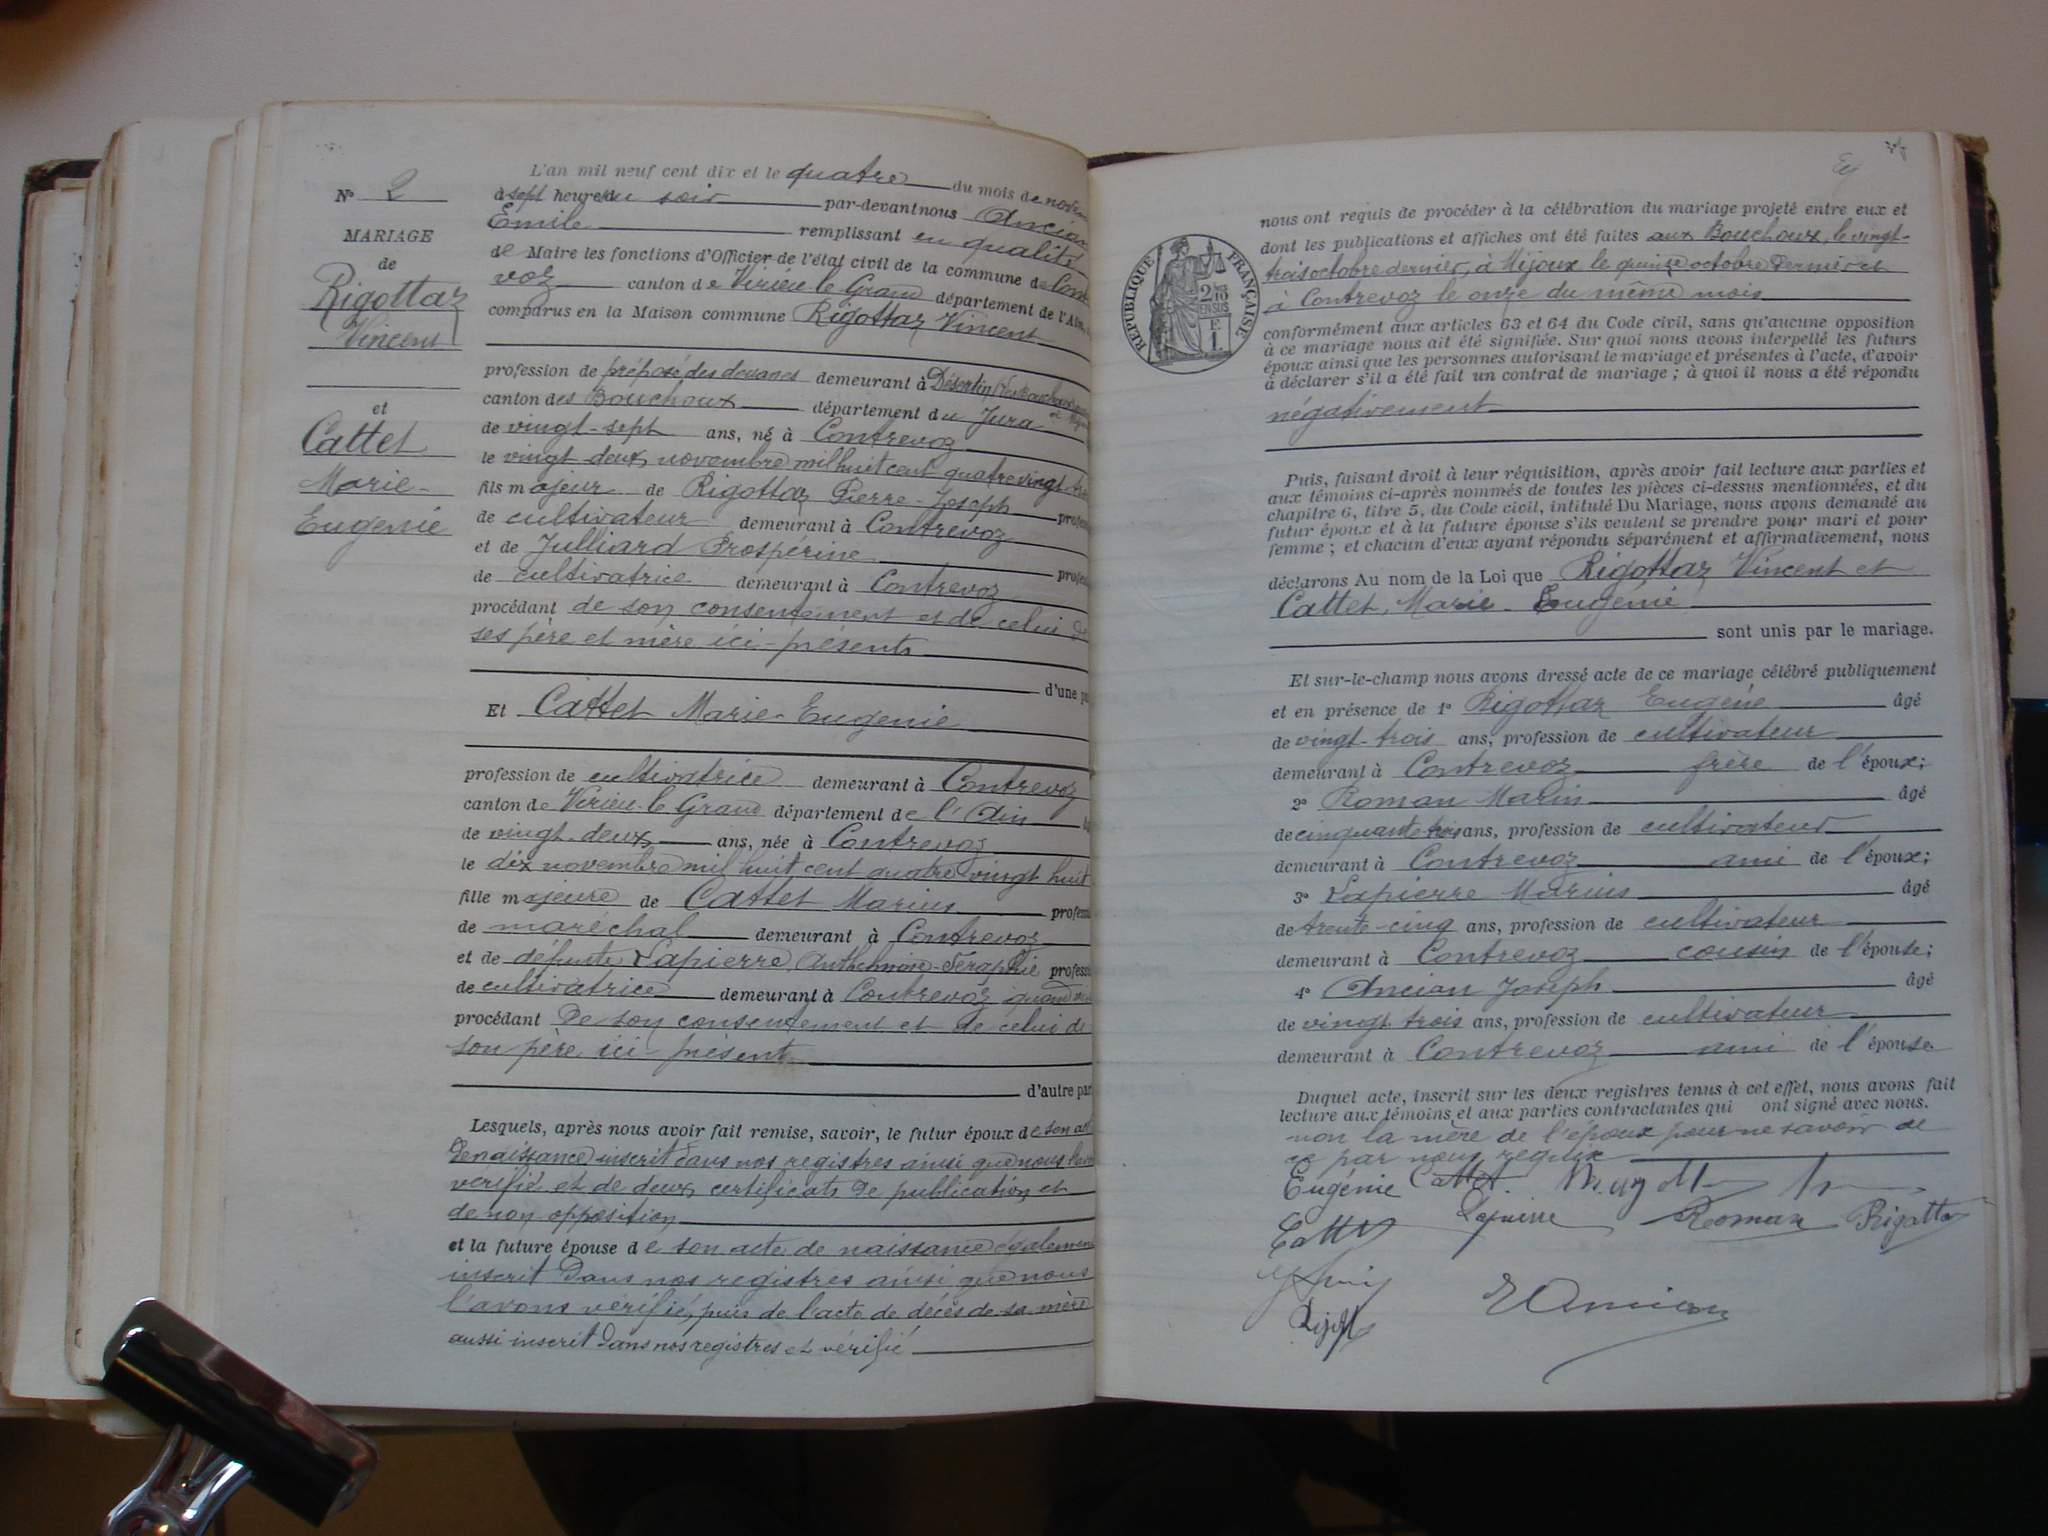 L'an mil neuf cent dix et le quatre du mois de novem
N° 2
à sept heures du soir par-devant nous Ancian
MARIAGE
de
Rigottaz
Vincent
et
Cattet
Marie-
Eugénie
Emile remplissant en qualité
de Maire les fonctions d'Officier de l'état civil de la commune de Contre
voz canton de Virieu le Grand département de l'Ain,
comparus en la Maison commune Rigottaz Vincent
profession de préposé des douanes demeurant à Désertin
canton des Bouchoux département du Jura
de vingt-sept ans, né à Contrevoz
le vingt-deux novembre mil huit cent quatre vingt
fils majeur de Rigottaz Pierre-Joseph profess
de cultivateur demeurant à Contrevoz
et de Julliard Prospérine profess
de cultivatrice demeurant à Contrevoz
procédant de son consentement et de celui de
ses père et mère ici-présents
d'une pa
Et Cattet Marie-Eugénie
profession de cultivatrice demeurant à Contrevoz
canton de Virieu-le-Grand département de l'Ain
de vingt-deux ans, née à Contrevoz
le dix novembre mil huit cent quatre vingt huit
fille majeure de Cattet Marius profess
de maréchal demeurant à Contrevoz
et de défunte Lapierre Anthelmoise-Séraphie profess
de cultivatrice demeurant à Contrevoz quand
procédant de son consentement et de celui de
son père ici-présent
d'autre par
Lesquels, après nous avoir fait remise, savoir, le futur époux de son acte
de naissance inscrit dans nos registres ainsi que nous l'avons
vérifié et de deux certificats de publication et
de non opposition
et la future épouse de son acte de naissance également
inscrit dans nos registres ainsi que nous
l'avons vérifié, puis de l'acte de décès de sa mère
aussi inscrit dans nos registres et vérifié
RÉPUBLIQUE FRANÇAISE
2/10
EN SUS
F
1.
nous ont requis de procéder à la célébration du mariage projeté entre eux et
dont les publications et affiches ont été faites aux Bouchoux, le vingt-
trois octobre dernier, à Mijoux le quinze octobre dernier et
à Contrevoz le onze du même mois
conformément aux articles 63 et 64 du Code civil, sans qu'aucune opposition
à ce mariage nous ait été signifiée. Sur quoi nous avons interpellé les futurs
époux ainsi que les personnes autorisant le mariage et présentes à l'acte, d'avoir
à déclarer s'il a été fait un contrat de mariage ; à quoi il nous a été répondu
négativement
Puis, faisant droit à leur réquisition, après avoir fait lecture aux parties et
aux témoins ci-après nommés de toutes les pièces ci-dessus mentionnées, et du
chapitre 6, titre 5, du Code civil, intitulé Du Mariage, nous avons demandé au
futur époux et à la future épouse s'ils veulent se prendre pour mari et pour
femme ; et chacun d'eux ayant répondu séparément et affirmativement, nous
déclarons Au nom de la Loi que Rigottaz Vincent et
Cattet, Marie-Eugénie
sont unis par le mariage.
Et sur-le-champ nous avons dressé acte de ce mariage célébré publiquement
et en présence de 1° Rigottaz Eugène âgé
de vingt-trois ans, profession de cultivateur
demeurant à Contrevoz frère de l'époux;
2° Roman Marin âgé
de cinquante-trois ans, profession de cultivateur
demeurant à Contrevoz ami de l'époux;
3° Lapierre Marius âgé
de trente-cinq ans, profession de cultivateur
demeurant à Contrevoz cousin de l'épouse;
4° Ancian Joseph âgé
de vingt trois ans, profession de cultivateur
demeurant à Contrevoz ami de l'épouse
Duquel acte, inscrit sur les deux registres tenus à cet effet, nous avons fait
lecture aux témoins et aux parties contractantes qui ont signé avec nous.
non la mère de l'époux pour ne savoir de
ce par nous requise
Eugénie Cattet.
Cattet Lapierre Roman Rigottaz
E Ancian